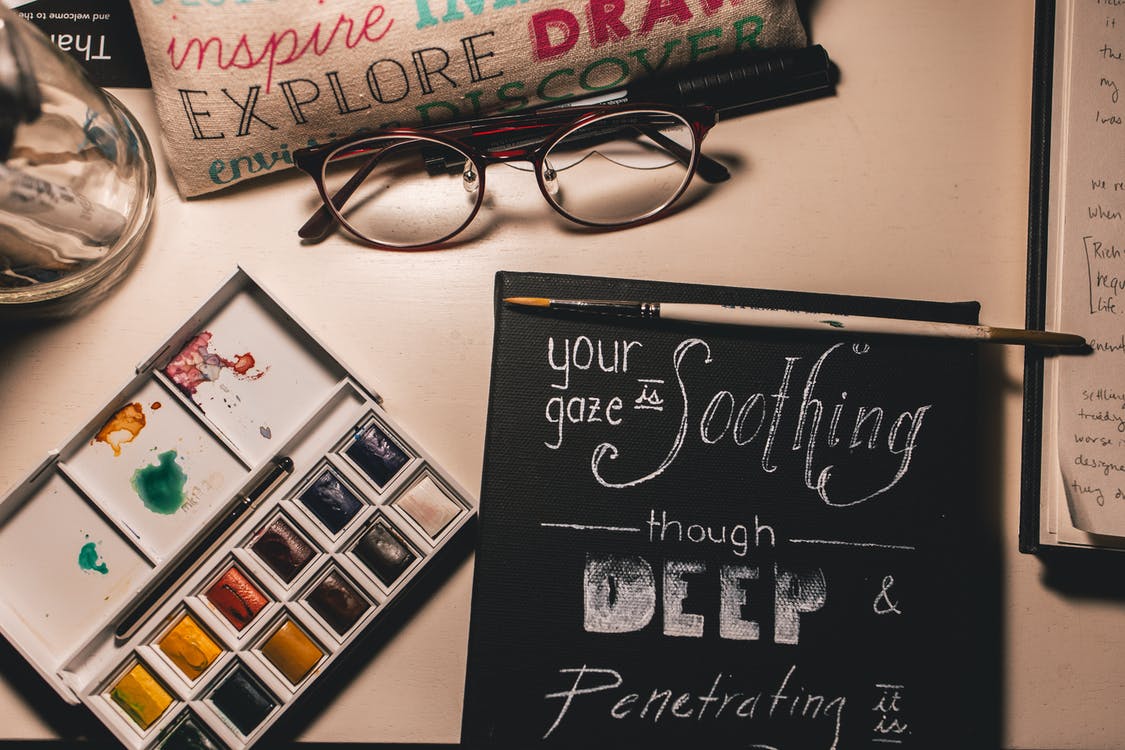 Than
and welcome to the
inspire
EXPLORE DRAW
DISCOVER
your
gaze is Soothing
though
DEEP &
Penetrating it
is.
it
the
my
I was
we re
when
Rich
requ
Life.
settling
worse i
designe
they